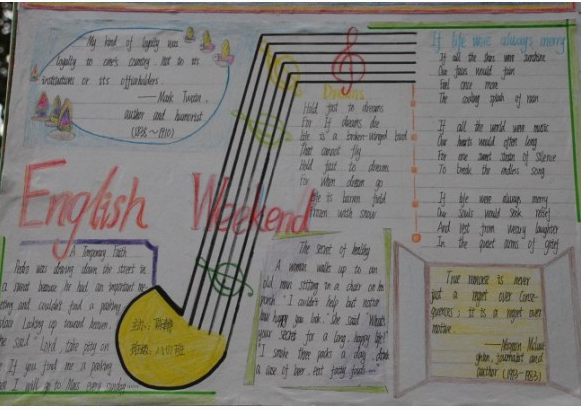 My kind of loyalty was
loyalty to one's country, not to its
institutions or its officeholders.
——Mark Twain,
author and humorist
(1835~1910)
Dreams
Hold fast to dreams
For if dreams die
Life is a broken-winged bird
That cannot fly
Hold fast to dreams
For when dreams go
Life is barren field
Frozen with snow
If life were always merry
If all the skies were sunshine
Our faces would fain
Feel once more
The cooling splash of rain
If all the world were music
Our hearts would often long
For one sweet strain of silence
To break the endless song
If life were always merry
Our souls would seek relief
And rest from weary laughter
In the quiet arms of grief
English Weekend
A Temporary Faith
Pedro was driving down the street in
a sweat because he had an important me-
eting and couldn't find a parking
place. Looking up toward heaven,
he said "Lord, take pity on
If you find me a parking
I will go to Mass every Sunday
班级：八(1)班
The secret of healthy
A woman walks up to an
old man sitting in a chair on his
porch. "I couldn't help but notice
how happy you look." She said "What's
your secret for a long, happy life?"
"I smoke three packs a day, drink
a case of beer, eat fatty foods
True remorse is never
just a regret over conse-
quences; it is a regret over
motive.
——Mignon McLau-
ghlin, journalist and
author (1913~1983)